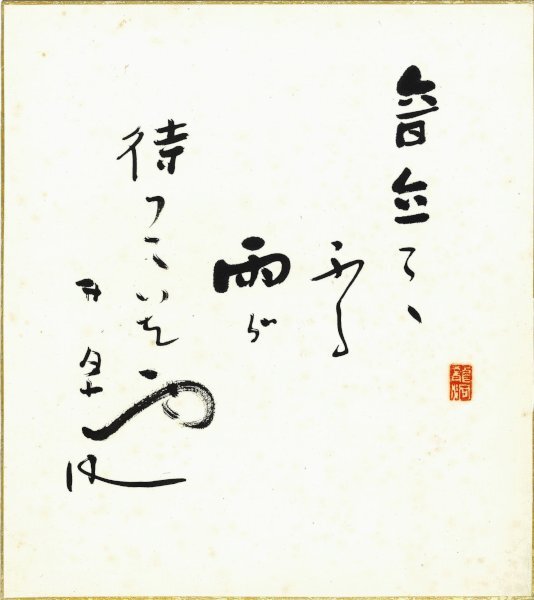 音立てゝ
ふる
雨が
待つていた雨
井泉水